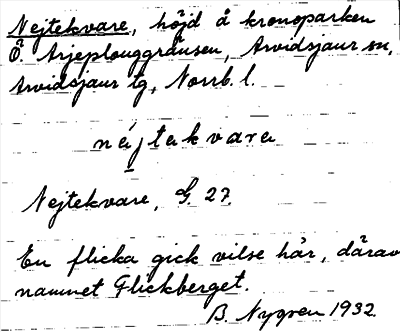 Nejtekvare, höjd å kronoparken
Ö. Arjeplouggränsen, Arvidsjaur sn,
Arvidsjaur tg, Norrb. l.
néjtakvarɛ
Nejtekvare, G 27.
En flicka gick vilse här, därav
namnet Flickberget.
B. Nygren 1932.